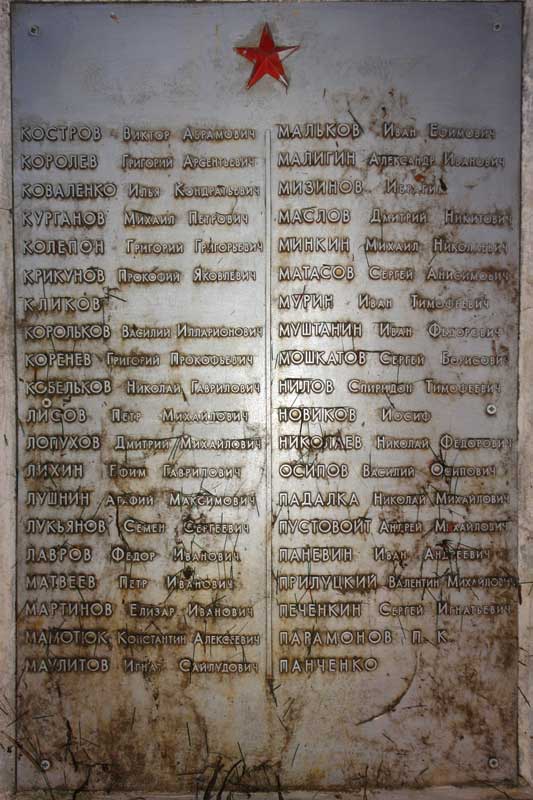 КОСТРОВ Виктор Абрамович
КОРОЛЕВ Григорий Арсентьевич
КОВАЛЕНКО Илья Кондратьевич
КУРГАНОВ Михаил Петрович
КОЛЕПОН Григорий Григорьевич
КРИКУНОВ Прокофий Яковлевич
КЛИКОВ
КОРОЛЬКОВ Василий Илларионович
КОРЕНЕВ Григорий Прокофьевич
КОБЕЛЬКОВ Николай Гаврилович
ЛИСОВ Петр Михайлович
ЛОПУХОВ Дмитрий Михайлович
ЛИХИН Ефим Гаврилович
ЛУШНИН Агафий Максимович
ЛУКЬЯНОВ Семен Сергеевич
ЛАВРОВ Федор Иванович
МАТВЕЕВ Петр Иванович
МАРТИНОВ Елизар Иванович
МАМОТЮК Константин Алексеевич
МАУЛИТОВ Игнат Сайлудович
МАЛЬКОВ Иван Ефимович
МАЛИГИН Александр Иванович
МИЗИНОВ
МАСЛОВ Дмитрий Никитович
МИНКИН Михаил Николаевич
МАТАСОВ Сергей Анисимович
МУРИН Иван Тимофеевич
МУШТАНИН Иван Федорович
МОШКАТОВ Сергей Борисович
НИЛОВ Спиридон Тимофеевич
НОВИКОВ Иосиф
НИКОЛАЕВ Николай Федорович
ОСИПОВ Василий Осипович
ПАДАЛКА Николай Михайлович
ПУСТОВОЙТ Андрей Михайлович
ПАНЕВИН Иван Андреевич
ПРИЛУЦКИЙ Валентин Михайлович
ПЕЧЕНКИН Сергей Игнатьевич
ПАРАМОНОВ П. К
ПАНЧЕНКО